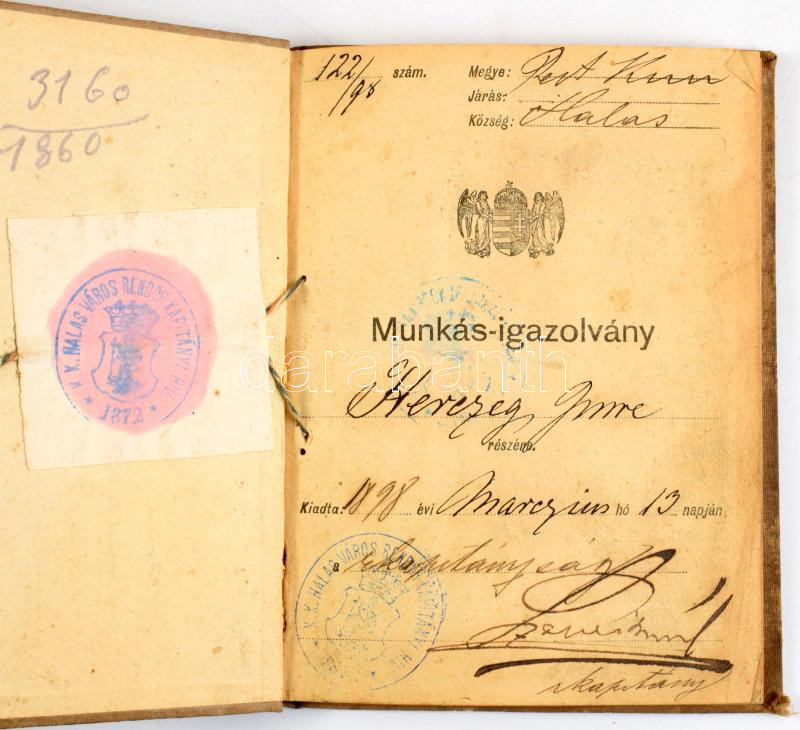 3160
1860
K. K. HALAS VÁROS RENDŐR KAPITÁNYI HIV.
1872
122/98 szám.
Megye: Pest Kun
Járás:
Község: Halas
Munkás-igazolvány
darabanth
Herczeg Imre
részére.
Kiadta: 1898 évi Marczius hó 13 napján
a rkapitányság
K. K. HALAS VÁROS RENDŐR KAPITÁNYI HIV.
rkapitány